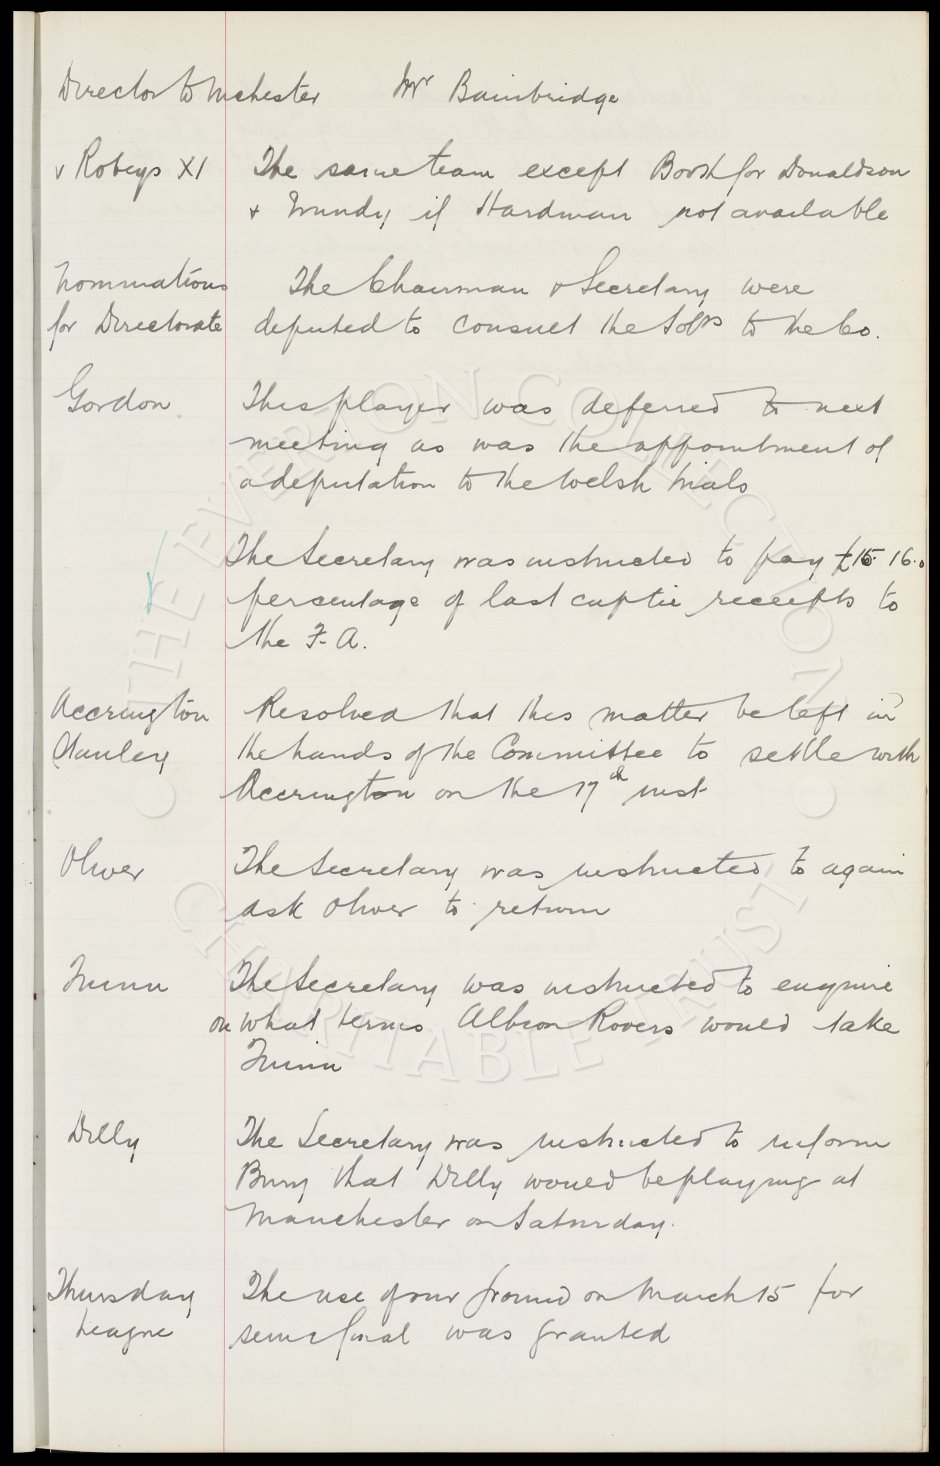 Director to Mchester Mr Bainbridge
v Robeys XI The same team except Booth for Donaldson
+ Mundy if Hardman not available
Nominations The Chairman & Secretary were
for Directorate deputed to consult the Solrs to the Co.
Gordon This player was deferred to next
meeting as was the appointment of
a deputation to the Welsh trials
The Secretary was instructed to pay £15.16.0
percentage of last cuptie receipts to
the F.A.
Accrington Resolved that this matter be left in
Stanley the hands of the Committee to settle with
Accrington on the 17th inst
Oliver The Secretary was instructed to again
ask Oliver to return
The Secretary was instructed to enquire
on what terms Albion Rovers would take
Dilly The Secretary was instructed to inform
Bury that Dilly would be playing at
Manchester on Saturday.
Thursday The use of our ground on March 15 for
League semi final was granted
THE EVERTON COLLECTION
CHARITABLE TRUST